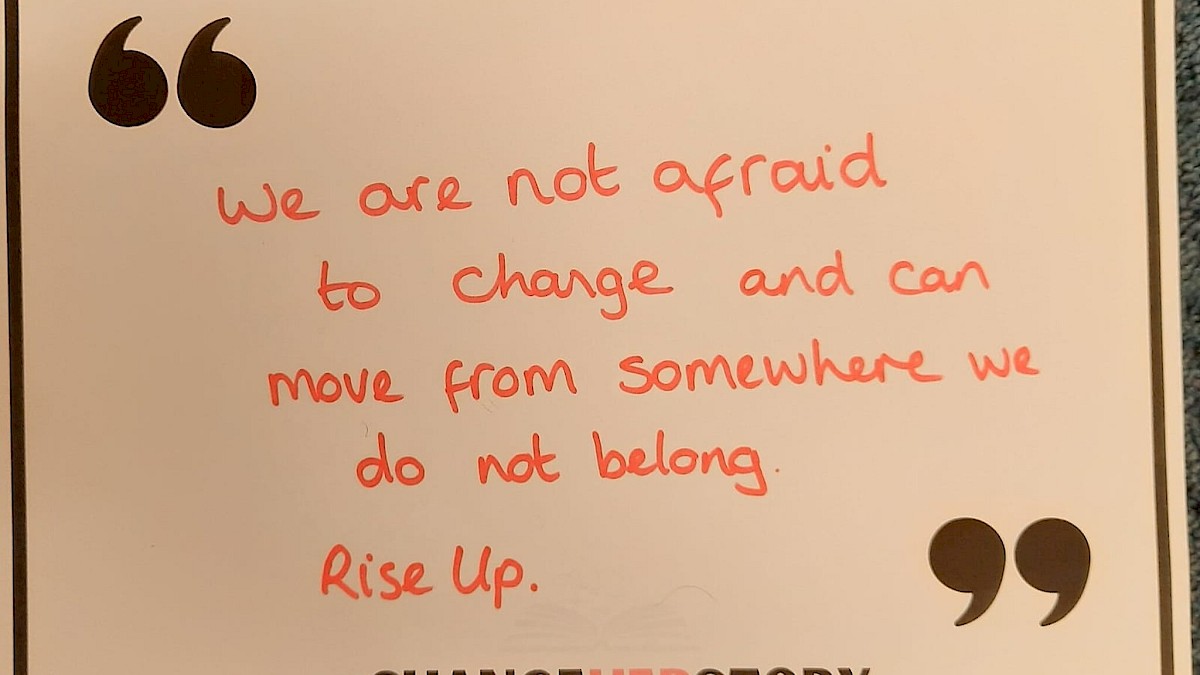 “
We are not afraid
to change and can
move from somewhere we
do not belong.
Rise Up.
”
CHANGEHERSTORY